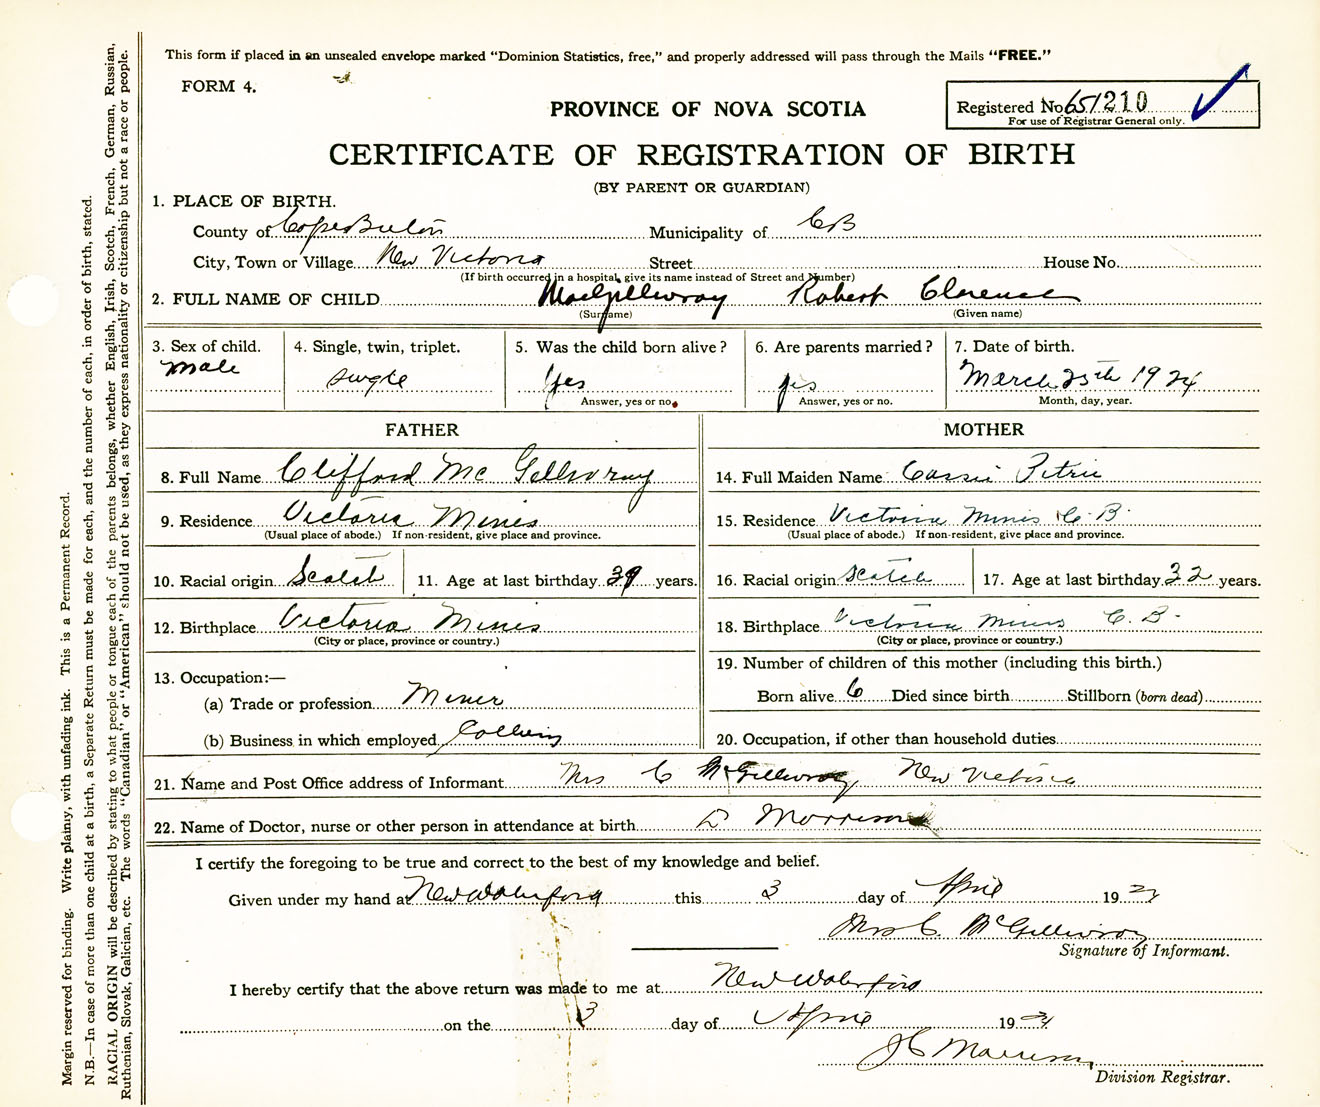 This form if placed in an unsealed envelope marked “Dominion Statistics, free,” and properly addressed will pass through the Mails “FREE.”
FORM 4.
PROVINCE OF NOVA SCOTIA
Registered No. 651210
For use of Registrar General only.
CERTIFICATE OF REGISTRATION OF BIRTH
(BY PARENT OR GUARDIAN)
1. PLACE OF BIRTH.
County of Cape Breton Municipality of CB
City, Town or Village New Victoria Street House No.
(If birth occurred in a hospital, give its name instead of Street and Number)
2. FULL NAME OF CHILD MacGillivray Robert Clarence
(Surname) (Given name)
3. Sex of child. 4. Single, twin, triplet. 5. Was the child born alive? 6. Are parents married? 7. Date of birth.
Male single Yes yes March 25th 1924
Answer, yes or no. Answer, yes or no. Month, day, year.
FATHER MOTHER
8. Full Name Clifford Mc Gillivray 14. Full Maiden Name Cassie Petrie
9. Residence Victoria Mines 15. Residence Victoria Mines C.B.
(Usual place of abode.) If non-resident, give place and province. (Usual place of abode.) If non-resident, give place and province.
10. Racial origin Scotch 11. Age at last birthday 39 years. 16. Racial origin Scotch 17. Age at last birthday 32 years.
12. Birthplace Victoria Mines 18. Birthplace Victoria Mines C.B.
(City or place, province or country.) (City or place, province or country.)
13. Occupation:— 19. Number of children of this mother (including this birth.)
(a) Trade or profession Miner Born alive 6 Died since birth Stillborn (born dead)
(b) Business in which employed Colliery 20. Occupation, if other than household duties
21. Name and Post Office address of Informant Mrs C McGillivray New Victoria
22. Name of Doctor, nurse or other person in attendance at birth D Morrison
I certify the foregoing to be true and correct to the best of my knowledge and belief.
Given under my hand at New Waterford this 3 day of April 19
Mrs C. McGillivray
Signature of Informant.
I hereby certify that the above return was made to me at New Waterford
on the 3 day of April 1924
J C Morrison
Division Registrar.
Margin reserved for binding. Write plainly, with unfading ink. This is a Permanent Record.
N.B.—In case of more than one child at a birth, a Separate Return must be made for each, and the number of each, in order of birth, stated.
RACIAL ORIGIN will be described by stating to what people or tongue each of the parents belongs, whether English, Irish, Scotch, French, German, Russian,
Ruthenian, Slovak, Galician, etc. The words “Canadian” or “American” should not be used, as they express nationality or citizenship but not a race or people.